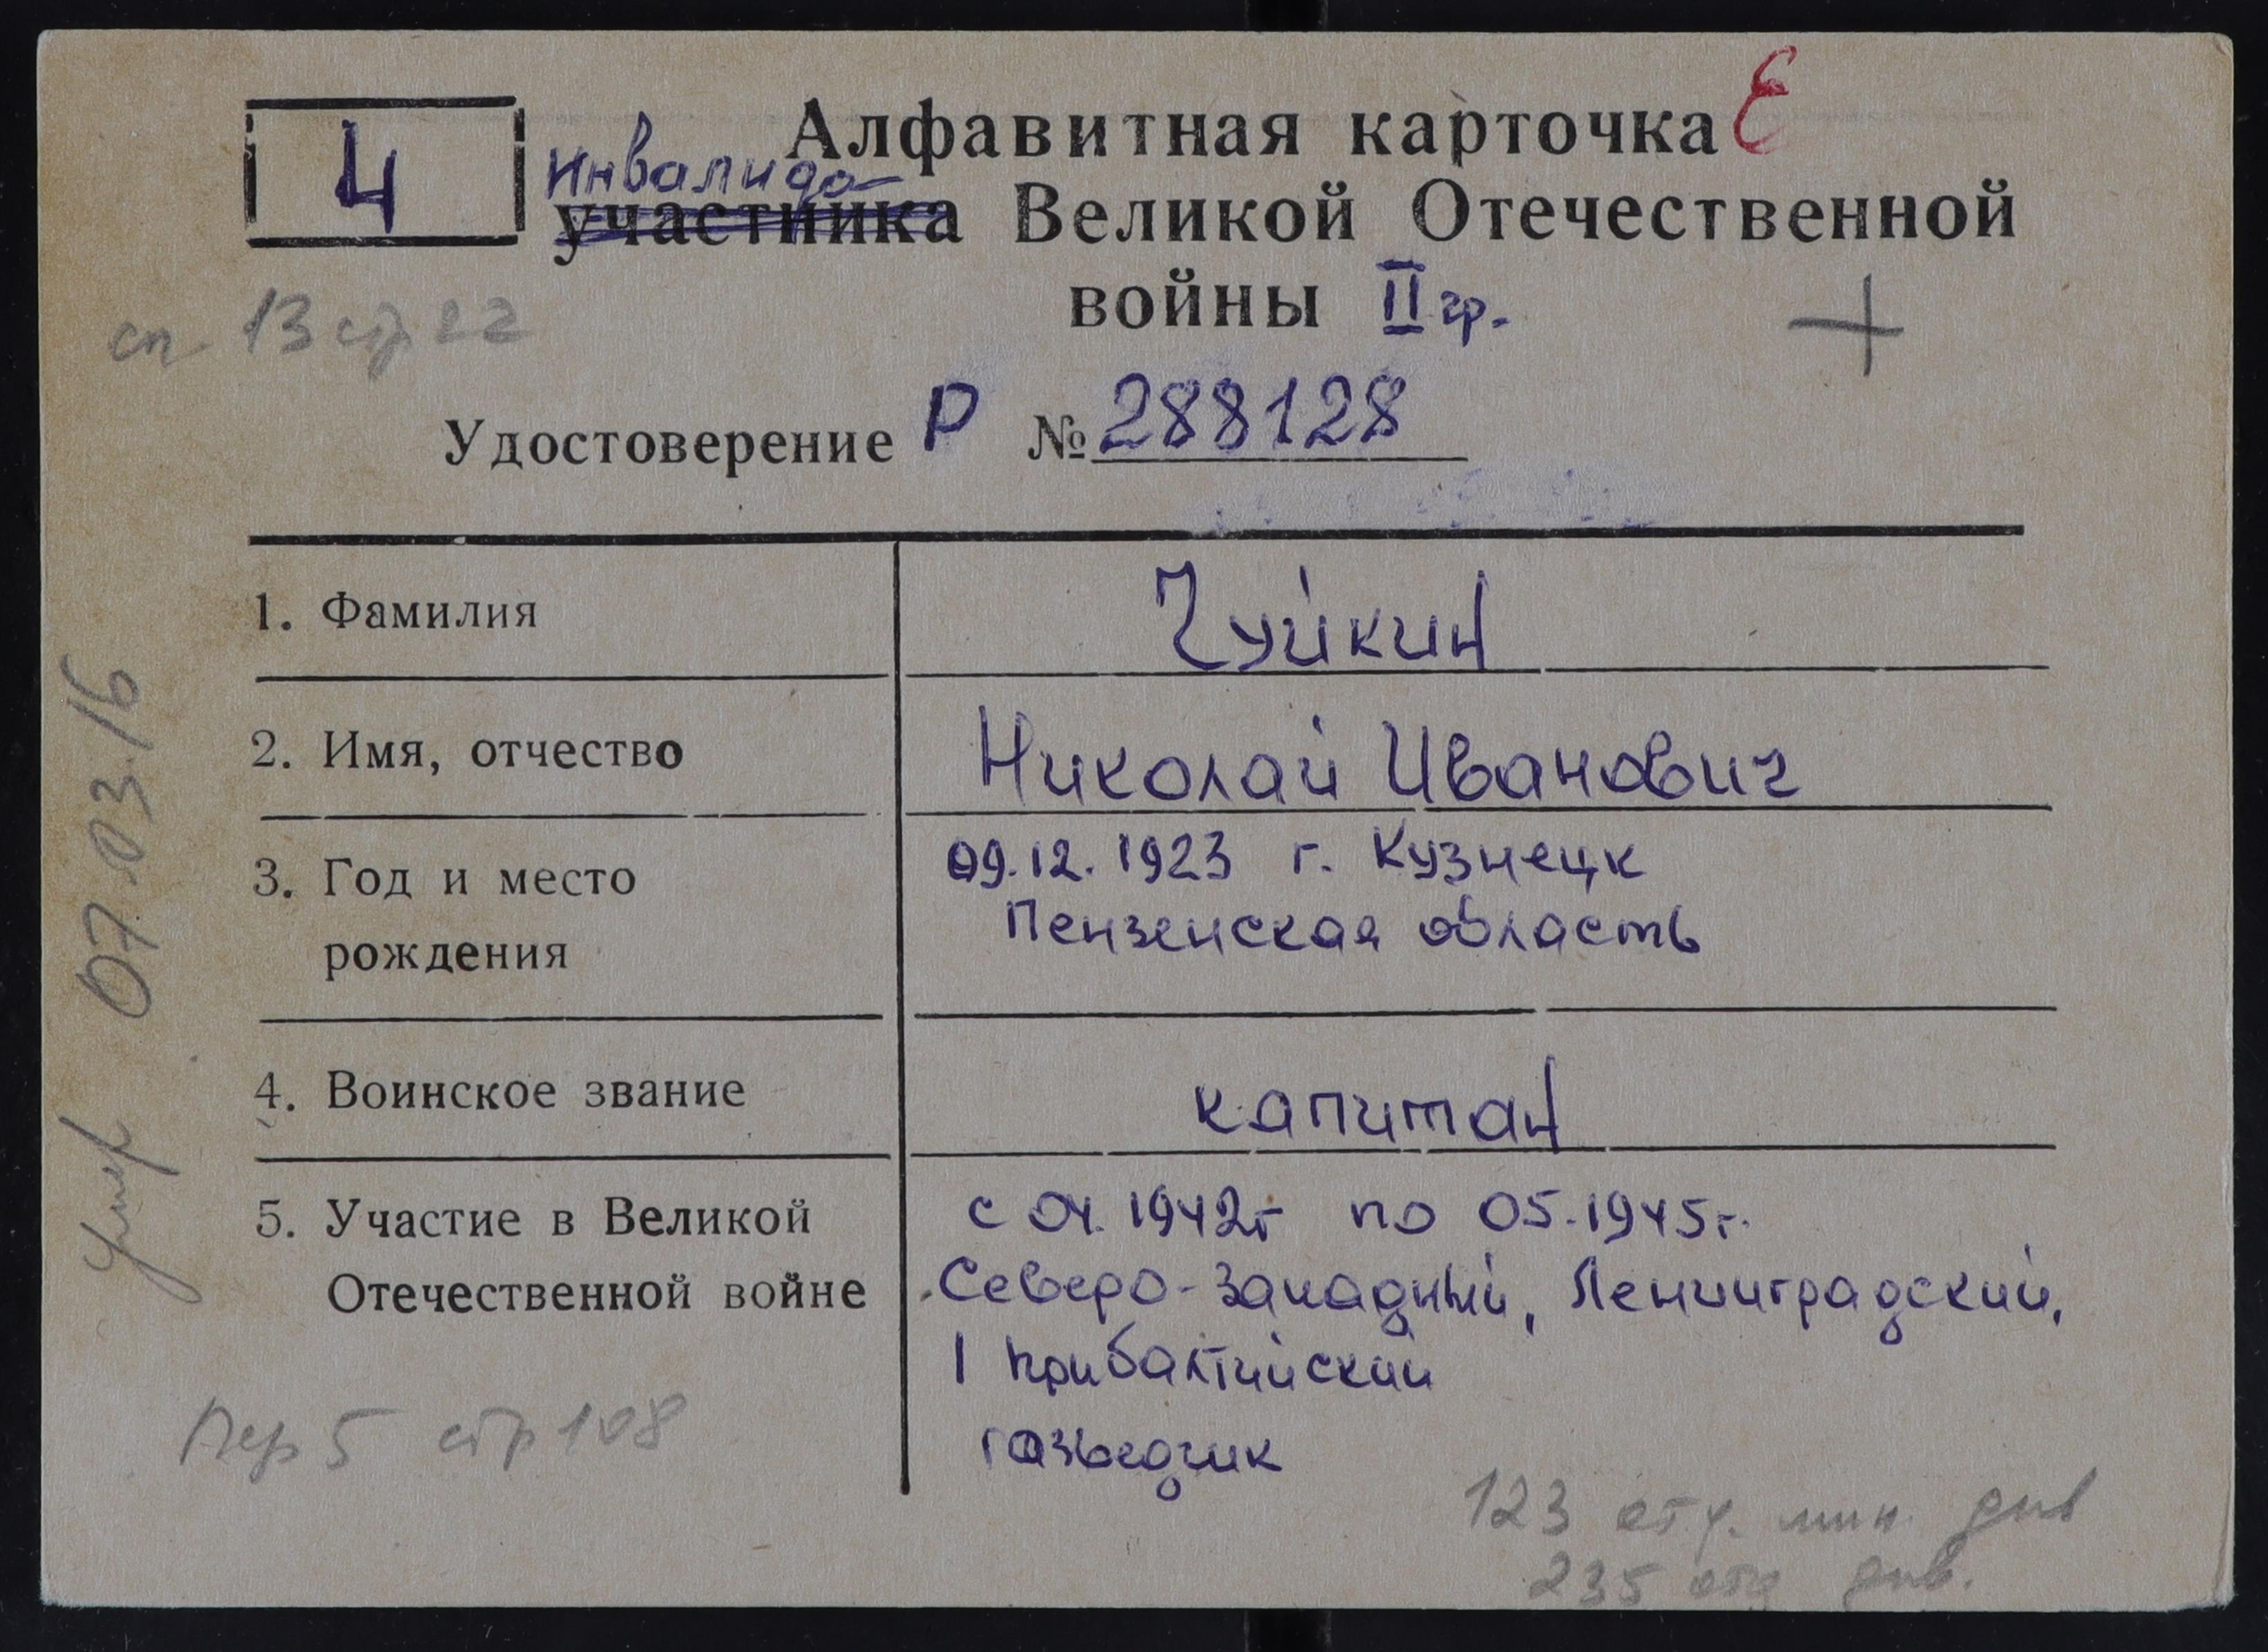 Алфавитная карточка Е
Ч
Инвалида
участника Великой Отечественной
войны II гр.
сп. 13 стр 22
+
Удостоверение Р № 288128
1. Фамилия Чуйкин
2. Имя, отчество Николай Иванович
3. Год и место 09.12.1923 г. Кузнецк
рождения Пензенская область
4. Воинское звание капитан
5. Участие в Великой с 04.1942г по 05.1945г.
Отечественной войне Северо-Западный, Ленинградский,
1 Прибалтийский
Пер 5 стр 108
разведчик
123 отд. мин. див
235 отд див.
Умер 07.03.16